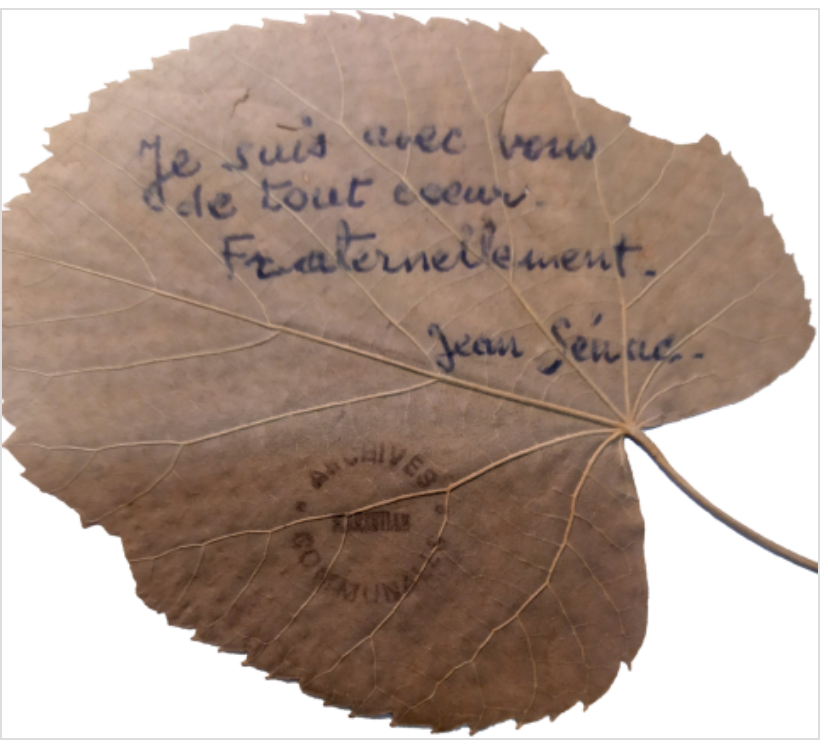 Je suis avec vous
de tout coeur.
Fraternellement.
Jean Sénac.
ARCHIVES
COMMUNALES